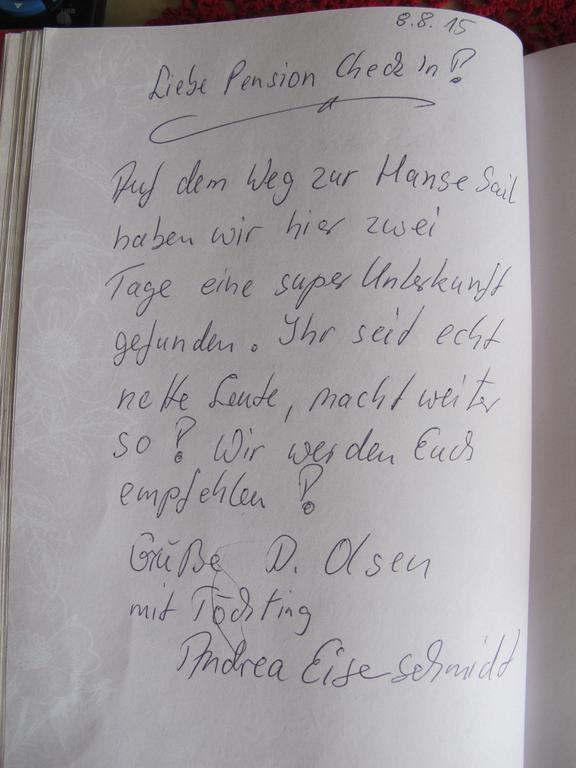 8.8.15
Liebe Pension Check in!
Auf dem Weg zur Hanse Sail
haben wir hier zwei
Tage eine super Unterkunft
gefunden. Ihr seid echt
nette Leute, macht weiter
so! Wir werden Euch
empfehlen!
Grüße D. Olsen
mit Töchting
Andrea Eiseschmidt